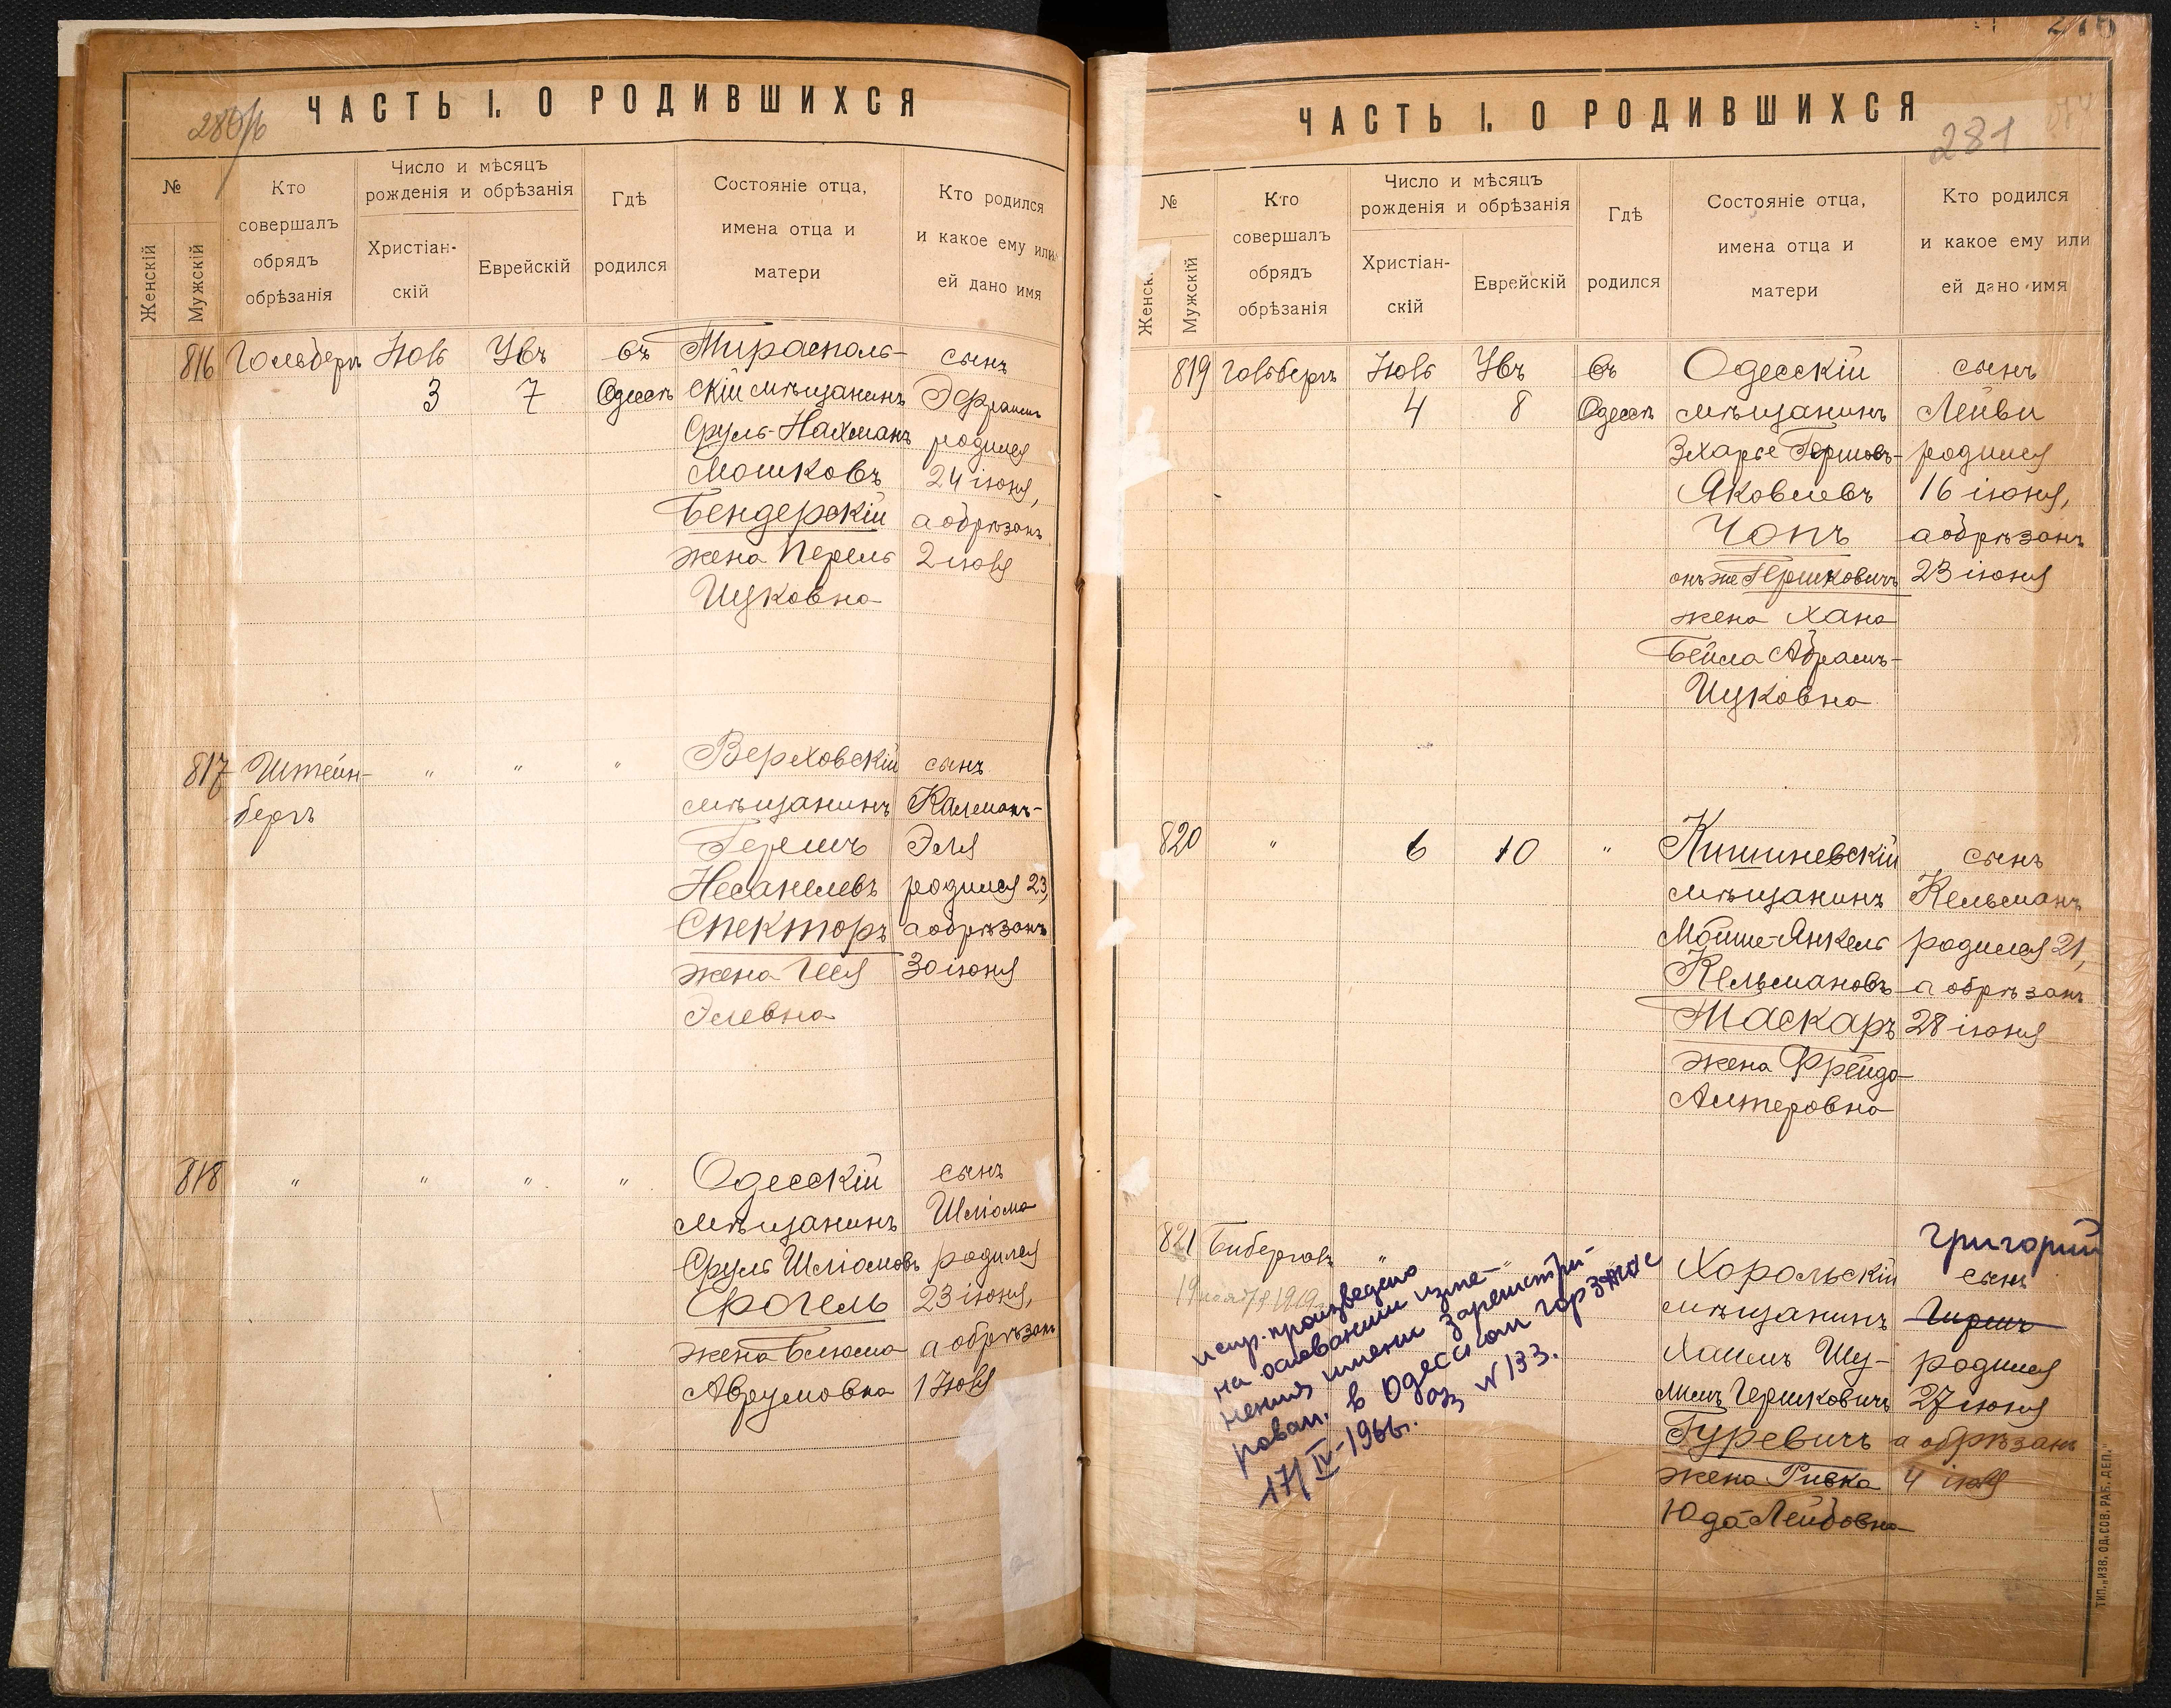 280/б
ЧАСТЬ I. О РОДИВШИХСЯ
№
Женскій
Мужскій
Кто
совершалъ
обрядъ
обрѣзанія
Число и мѣсяцъ
рожденія и обрѣзанія
Христіан-
скій
Еврейскій
Гдѣ
родился
Состояніе отца,
имена отца и
матери
Кто родился
и какое ему или
ей дано имя
816
Гольдберг
Іюль
3
Ув
7
въ
Одессѣ
Тирасполь-
скій мѣщанинъ
Сруль-Нахманъ
Мошковъ
Бендерскій
жена Перель
Ицковна
сынъ
Эфраимъ
родился
24 іюня,
а обрѣзанъ
2 іюля
817
Штейн-
бергъ
"
"
"
Верховскій
мѣщанинъ
Гершъ
Несанелевъ
Спекторъ
жена
Элевна
сынъ
Калманъ-
Эля
родился 23,
а обрѣзанъ
30 іюня
818
"
"
"
"
Одесскій
мѣщанинъ
Сруль Шліомовъ
Фогель
жена Блюма
Аврумовна
сынъ
Шліома
родился
23 іюня,
а обрѣзанъ
1 Іюля
ЧАСТЬ I. О РОДИВШИХСЯ
281
№
Женск.
Мужскій
Кто
совершалъ
обрядъ
обрѣзанія
Число и мѣсяцъ
рожденія и обрѣзанія
Христіан-
скій
Еврейскій
Гдѣ
родился
Состояніе отца,
имена отца и
матери
Кто родился
и какое ему или
ей дано имя
819
Гольдбергъ
Іюль
4
Увъ
8
въ
Одессѣ
Одесскій
мѣщанинъ
Зхарье Гершовъ-
Яковлевъ
Чопъ
онъ же Гершковичъ
жена Хана
Бейла Абрамъ-
Ицковна
сынъ
Лейви
родился
16 іюня,
а обрѣзанъ
23 іюня
820
"
6
10
"
Кишиневскій
мѣщанинъ
Мойше-Янкель
Кельмановъ
Маскаръ
жена Фрейда
Алтеровна
сынъ
Кельманъ
родился 21,
а обрѣзанъ
28 іюня
821
"
"
Хорольскій
мѣщанинъ
Хаимъ Шу-
лимъ Гершковичъ
Гуревичъ
жена Ривка
Юда-Лейбовна
Григорий
сынъ
Гиршъ
родился
27 іюня
а обрѣзанъ
4 іюля
1919
испр. произведено
на основании изме-
нения имени зарегистри-
рован. в Одесском горзагсе
за N 133.
17/IV-1966г.
ТИП. „ИЗВ. ОД. СОВ. РАБ. ДЕП."